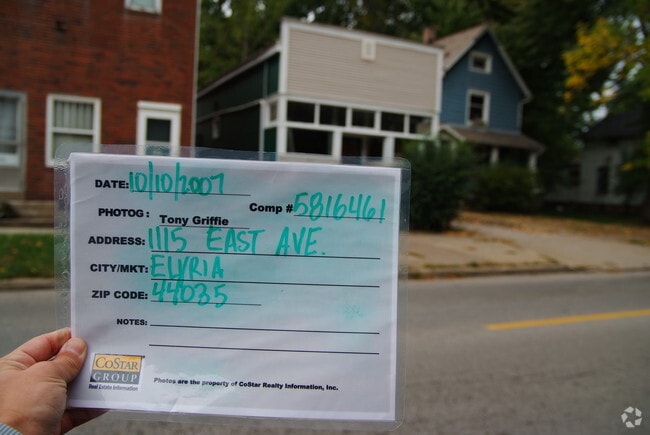 DATE: 10/10/2007
PHOTOG: Tony Griffie Comp # 5816461
ADDRESS: 1115 EAST AVE.
CITY/MKT: ELYRIA
ZIP CODE: 44035
NOTES:
COSTAR
GROUP
Real Estate Information
Photos are the property of CoStar Realty Information, Inc.